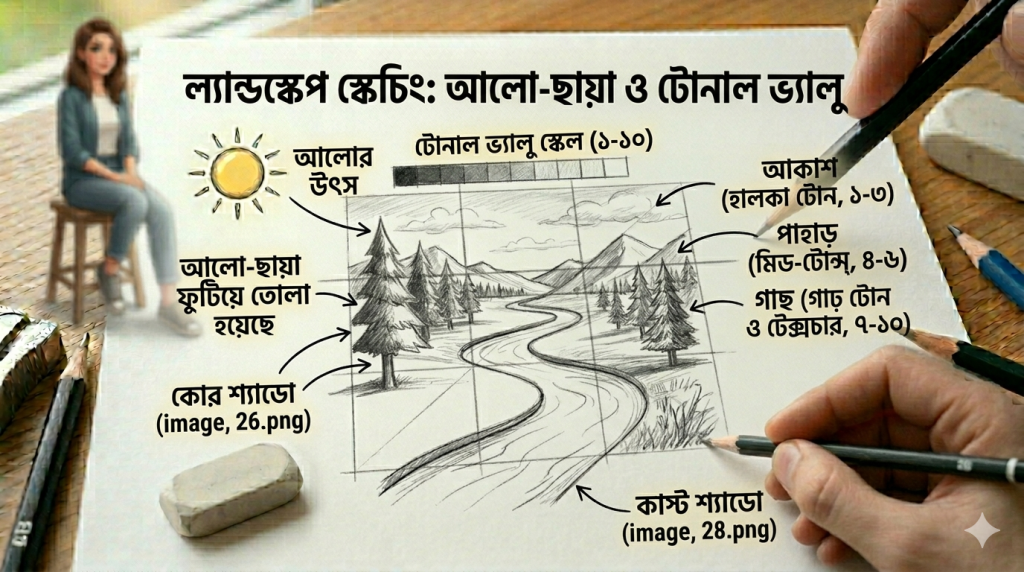 ল্যান্ডস্কেপ স্কেচিং: আলো-ছায়া ও টোনাল ভ্যালু
টোনাল ভ্যালু স্কেল (১-১০)
আলোর
উৎস
আকাশ
(হালকা টোন, ১-৩)
পাহাড়
(মিড-টোন্স, ৪-৬)
আলো-ছায়া
ফুটিয়ে তোলা
হয়েছে
গাছ (গাঢ় টোন
ও টেক্সচার, ৭-১০)
কোর শ্যাডো
(image, 26.png)
কাস্ট শ্যাডো
(image, 28.png)